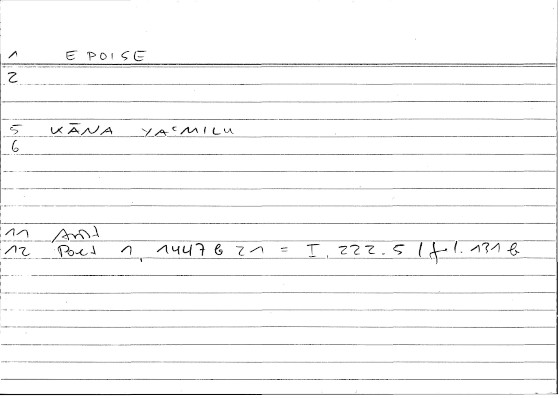 1 EPOISE
2
5 KĀNA YAʿMILU
6
11 Arist
12 Poet 1, 1447 b 21 = I. 222.5 / f l. 131 b